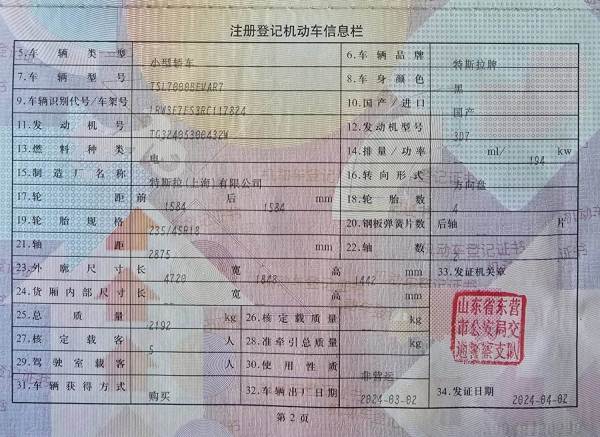 注册登记机动车信息栏
5.车辆类型 小型轿车 6.车辆品牌 特斯拉牌
7.车辆型号 TSL7000BEVAR7 8.车身颜色 黑
9.车辆识别代号/车架号 10.国产/进口 国产
11.发动机号 TG32495300432W 12.发动机型号 3D7
13.燃料种类 电 14.排量/功率 ml/ 194 kw
15.制造厂名称 特斯拉(上海)有限公司 16.转向形式 方向盘
17.轮距 前 1584 后 1584 mm 18.轮胎数 4
19.轮胎规格 235/45R18 20.钢板弹簧片数 后轴 片
21.轴距 2875 mm 22.轴数 2
23.外廓尺寸 长 4720 宽 1848 高 1442 mm 33.发证机关章
24.货厢内部尺寸 长 宽 高 mm
25.总质量 2192 kg 26.核定载质量 kg
27.核定载客 5 人 28.准牵引总质量 kg
29.驾驶室载客 人 30.使用性质 非营运
31.车辆获得方式 购买 32.车辆出厂日期 2024-03-02 34.发证日期 2024-04-02
山东省东营
市公安局交
通警察支队
第2页